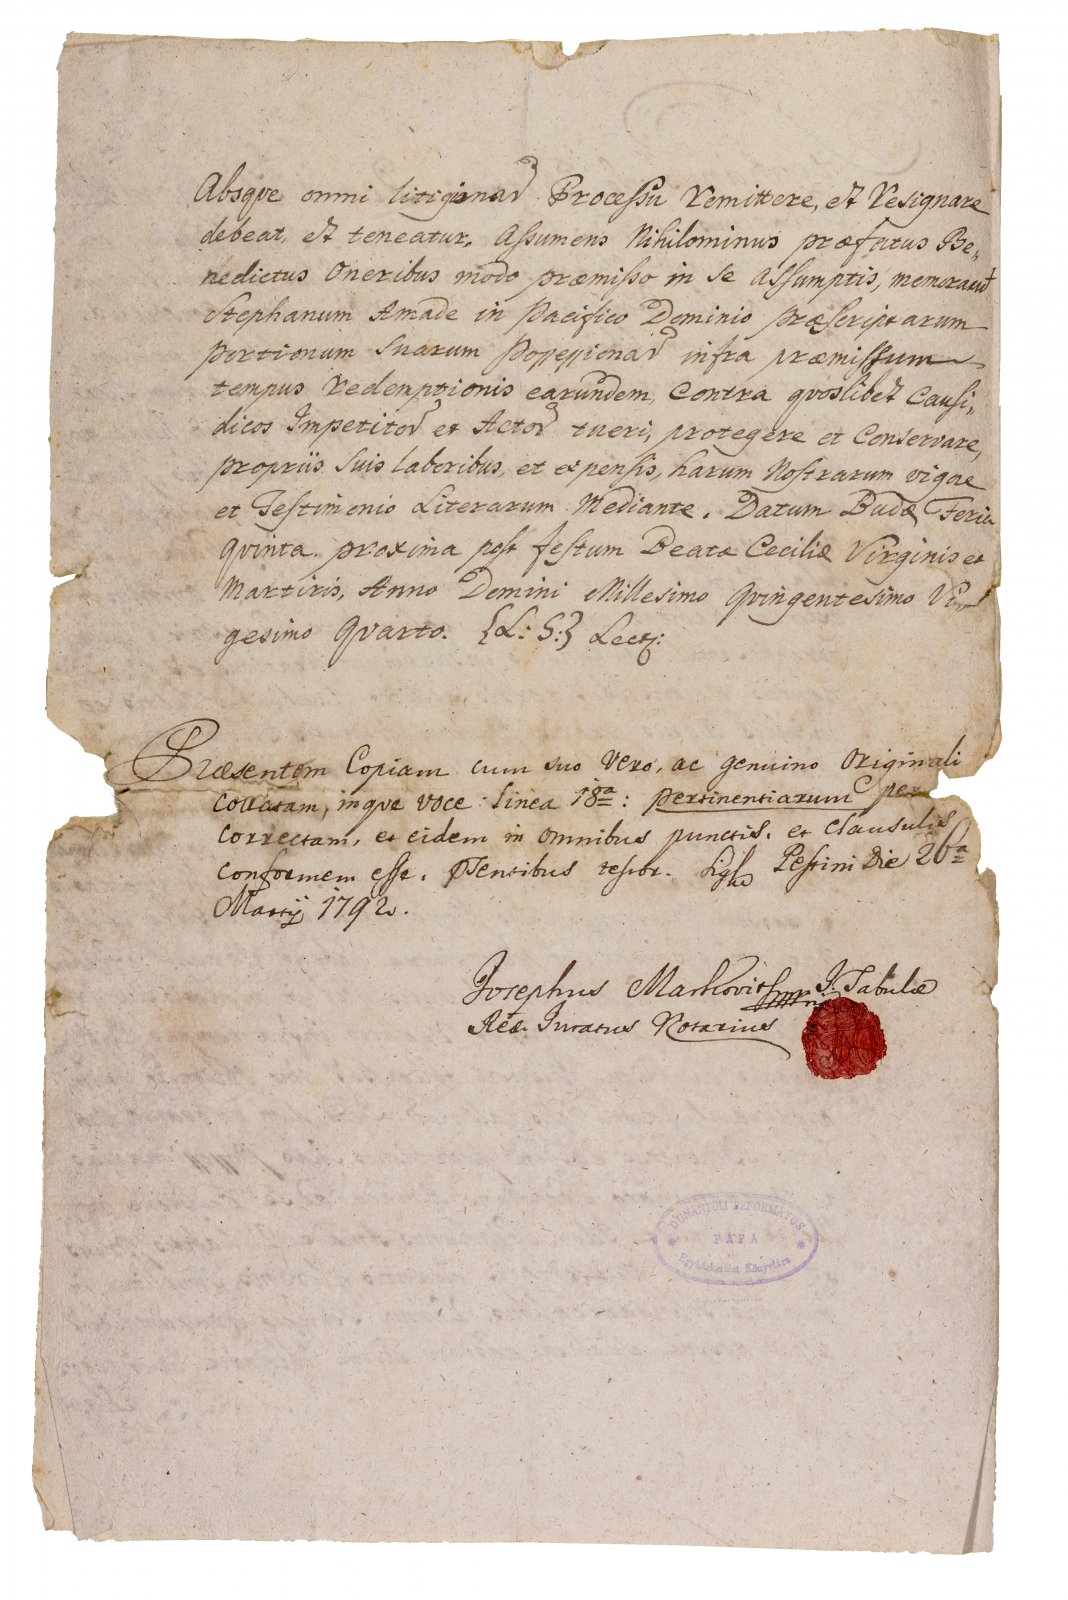 Absque omni litigionar̃ Processu remittere, et resignare
debeat, et teneatur, Assumens Nihilominus præfatus Be„
nedictus Oneribus modo præmisso in se assumptis, memorat
Stephanum Amade in Pacifico Dominio præscriptarum
portionum suarum possessionar̃ infra præmissum
tempus redemptionis earundem, contra quoslibet Causi„
dicos Impetitor̃ et Actor̃ tueri, protegere et Conservare,
propriis suis laboribus, et expensis, harum Nostrarum vigore
et Testimonio Literarum Mediante. Datum Budæ Feria
quinta proxima post festum Beatæ Ceciliæ Virginis et
Martiris, Anno Domini Millesimo Quingentesimo Vi
gesimo Quarto. {L: S:} Lect:
Præsentem Copiam cum suo vero, ac genuino Originali
collatam, inque voce: linea 18a: pertinentiarum per
correctam, et eidem in omnibus punctis, et clausulis
conformem esse, Præsentibus testor. Sigl. Pestini Die 20a
Martij 1792.
Josephus Markovits mpr I. Tabulæ
Reæ. Juratus Notarius
DUNÁNTÚLI REFORMÁTUS
PÁPA
Egyházkerület Könyvtára